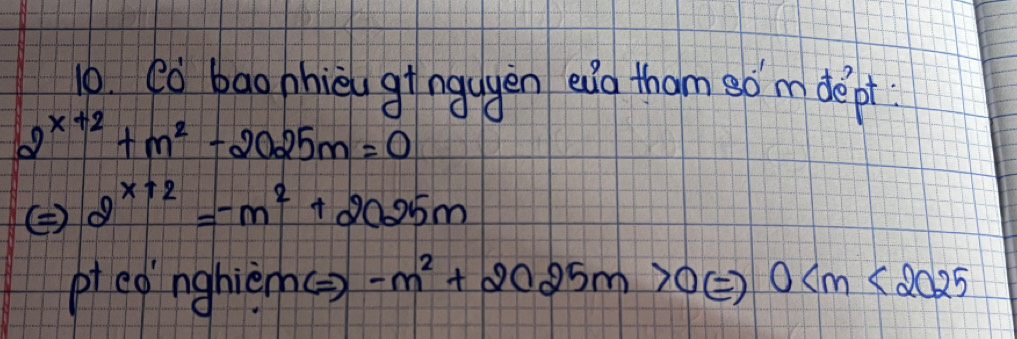 10. Có bao nhiêu gt nguyên của tham số m để pt:
2^{x+2} + m² - 2025m = 0
(=) 2^{x+2} = -m² + 2025m
pt có nghiệm (=) -m² + 2025m > 0 (=) 0 < m < 2025